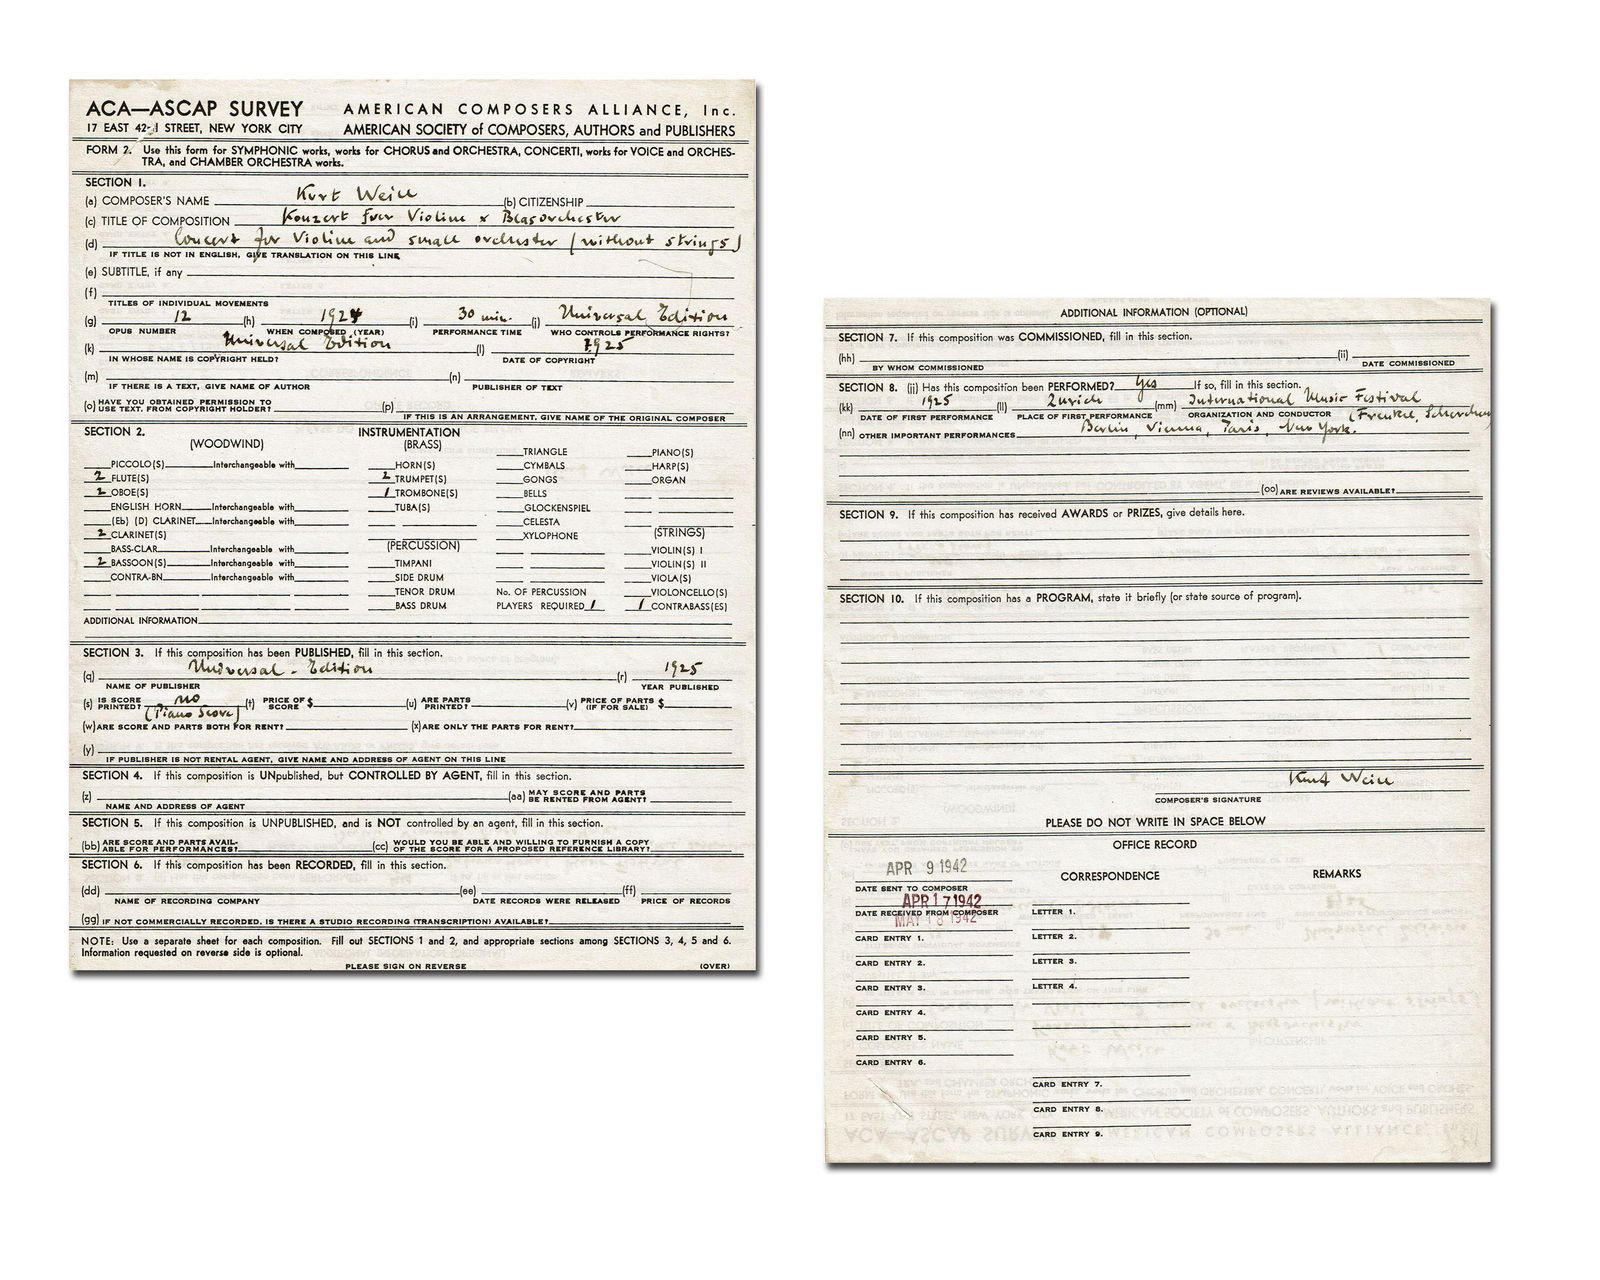 ACA—ASCAP SURVEY AMERICAN COMPOSERS ALLIANCE, Inc.
17 EAST 42nd STREET, NEW YORK CITY AMERICAN SOCIETY of COMPOSERS, AUTHORS and PUBLISHERS
FORM 2. Use this form for SYMPHONIC works, works for CHORUS and ORCHESTRA, CONCERTI, works for VOICE and ORCHES-
TRA, and CHAMBER ORCHESTRA works.
SECTION 1.
(a) COMPOSER'S NAME Kurt Weill (b) CITIZENSHIP
(c) TITLE OF COMPOSITION Konzert fuer Violine & Blasorchester
(d) Concert for Violine and small orchester (without strings)
IF TITLE IS NOT IN ENGLISH, GIVE TRANSLATION ON THIS LINE
(e) SUBTITLE, if any
(f)
TITLES OF INDIVIDUAL MOVEMENTS
(g) 12 (h) 1924 (i) 30 min. (j) Universal Edition
OPUS NUMBER WHEN COMPOSED (YEAR) PERFORMANCE TIME WHO CONTROLS PERFORMANCE RIGHTS?
(k) Universal Edition (l) 1925
IN WHOSE NAME IS COPYRIGHT HELD? DATE OF COPYRIGHT
(m) (n)
IF THERE IS A TEXT, GIVE NAME OF AUTHOR PUBLISHER OF TEXT
(o) HAVE YOU OBTAINED PERMISSION TO
USE TEXT, FROM COPYRIGHT HOLDER? (p)
IF THIS IS AN ARRANGEMENT, GIVE NAME OF THE ORIGINAL COMPOSER
SECTION 2. INSTRUMENTATION
(WOODWIND) (BRASS)
PICCOLO(S) Interchangeable with HORN(S) TRIANGLE PIANO(S)
2 FLUTE(S) 2 TRUMPET(S) CYMBALS HARP(S)
2 OBOE(S) 1 TROMBONE(S) GONGS ORGAN
ENGLISH HORN Interchangeable with TUBA(S) BELLS
(Eb) (D) CLARINET Interchangeable with GLOCKENSPIEL
2 CLARINET(S) CELESTA
BASS-CLAR Interchangeable with (PERCUSSION) XYLOPHONE (STRINGS)
2 BASSOON(S) Interchangeable with TIMPANI VIOLIN(S) I
CONTRA-BN Interchangeable with SIDE DRUM VIOLIN(S) II
TENOR DRUM VIOLA(S)
BASS DRUM No. OF PERCUSSION VIOLONCELLO(S)
PLAYERS REQUIRED 1 1 CONTRABASS(ES)
ADDITIONAL INFORMATION
SECTION 3. If this composition has been PUBLISHED, fill in this section.
(q) Universal - Edition (r) 1925
NAME OF PUBLISHER YEAR PUBLISHED
(s) IS SCORE PRINTED? no (t) PRICE OF SCORE $ (u) ARE PARTS PRINTED? (v) PRICE OF PARTS (IF FOR SALE) $
(Piano Score)
(w) ARE SCORE AND PARTS BOTH FOR RENT? (x) ARE ONLY THE PARTS FOR RENT?
(y)
IF PUBLISHER IS NOT RENTAL AGENT, GIVE NAME AND ADDRESS OF AGENT ON THIS LINE
SECTION 4. If this composition is UNpublished, but CONTROLLED BY AGENT, fill in this section.
(z) (aa) MAY SCORE AND PARTS BE RENTED FROM AGENT?
NAME AND ADDRESS OF AGENT
SECTION 5. If this composition is UNPUBLISHED, and is NOT controlled by an agent, fill in this section.
(bb) ARE SCORE AND PARTS AVAIL- (cc) WOULD YOU BE ABLE AND WILLING TO FURNISH A COPY
ABLE FOR PERFORMANCES? OF THE SCORE FOR A PROPOSED REFERENCE LIBRARY?
SECTION 6. If this composition has been RECORDED, fill in this section.
(dd) (ee) (ff)
NAME OF RECORDING COMPANY DATE RECORDS WERE RELEASED PRICE OF RECORDS
(gg) IF NOT COMMERCIALLY RECORDED, IS THERE A STUDIO RECORDING (TRANSCRIPTION) AVAILABLE?
NOTE: Use a separate sheet for each composition. Fill out SECTIONS 1 and 2, and appropriate sections among SECTIONS 3, 4, 5 and 6.
Information requested on reverse side is optional.
PLEASE SIGN ON REVERSE (OVER)
ADDITIONAL INFORMATION (OPTIONAL)
SECTION 7. If this composition was COMMISSIONED, fill in this section.
(hh) (ii)
BY WHOM COMMISSIONED DATE COMMISSIONED
SECTION 8. (jj) Has this composition been PERFORMED? yes If so, fill in this section.
(kk) 1925 (ll) Zurich (mm) International Music Festival
DATE OF FIRST PERFORMANCE PLACE OF FIRST PERFORMANCE ORGANIZATION AND CONDUCTOR (Frenkel, Scherchen)
(nn) OTHER IMPORTANT PERFORMANCES Berlin, Vienna, Paris, New York.
(oo) ARE REVIEWS AVAILABLE?
SECTION 9. If this composition has received AWARDS or PRIZES, give details here.
SECTION 10. If this composition has a PROGRAM, state it briefly (or state source of program).
Kurt Weill
COMPOSER'S SIGNATURE
PLEASE DO NOT WRITE IN SPACE BELOW
OFFICE RECORD
APR 9 1942 CORRESPONDENCE REMARKS
DATE SENT TO COMPOSER
APR 17 1942
DATE RECEIVED FROM COMPOSER LETTER 1.
MAY 18 1942
CARD ENTRY 1. LETTER 2.
CARD ENTRY 2. LETTER 3.
CARD ENTRY 3. LETTER 4.
CARD ENTRY 4.
CARD ENTRY 5.
CARD ENTRY 6.
CARD ENTRY 7.
CARD ENTRY 8.
CARD ENTRY 9.